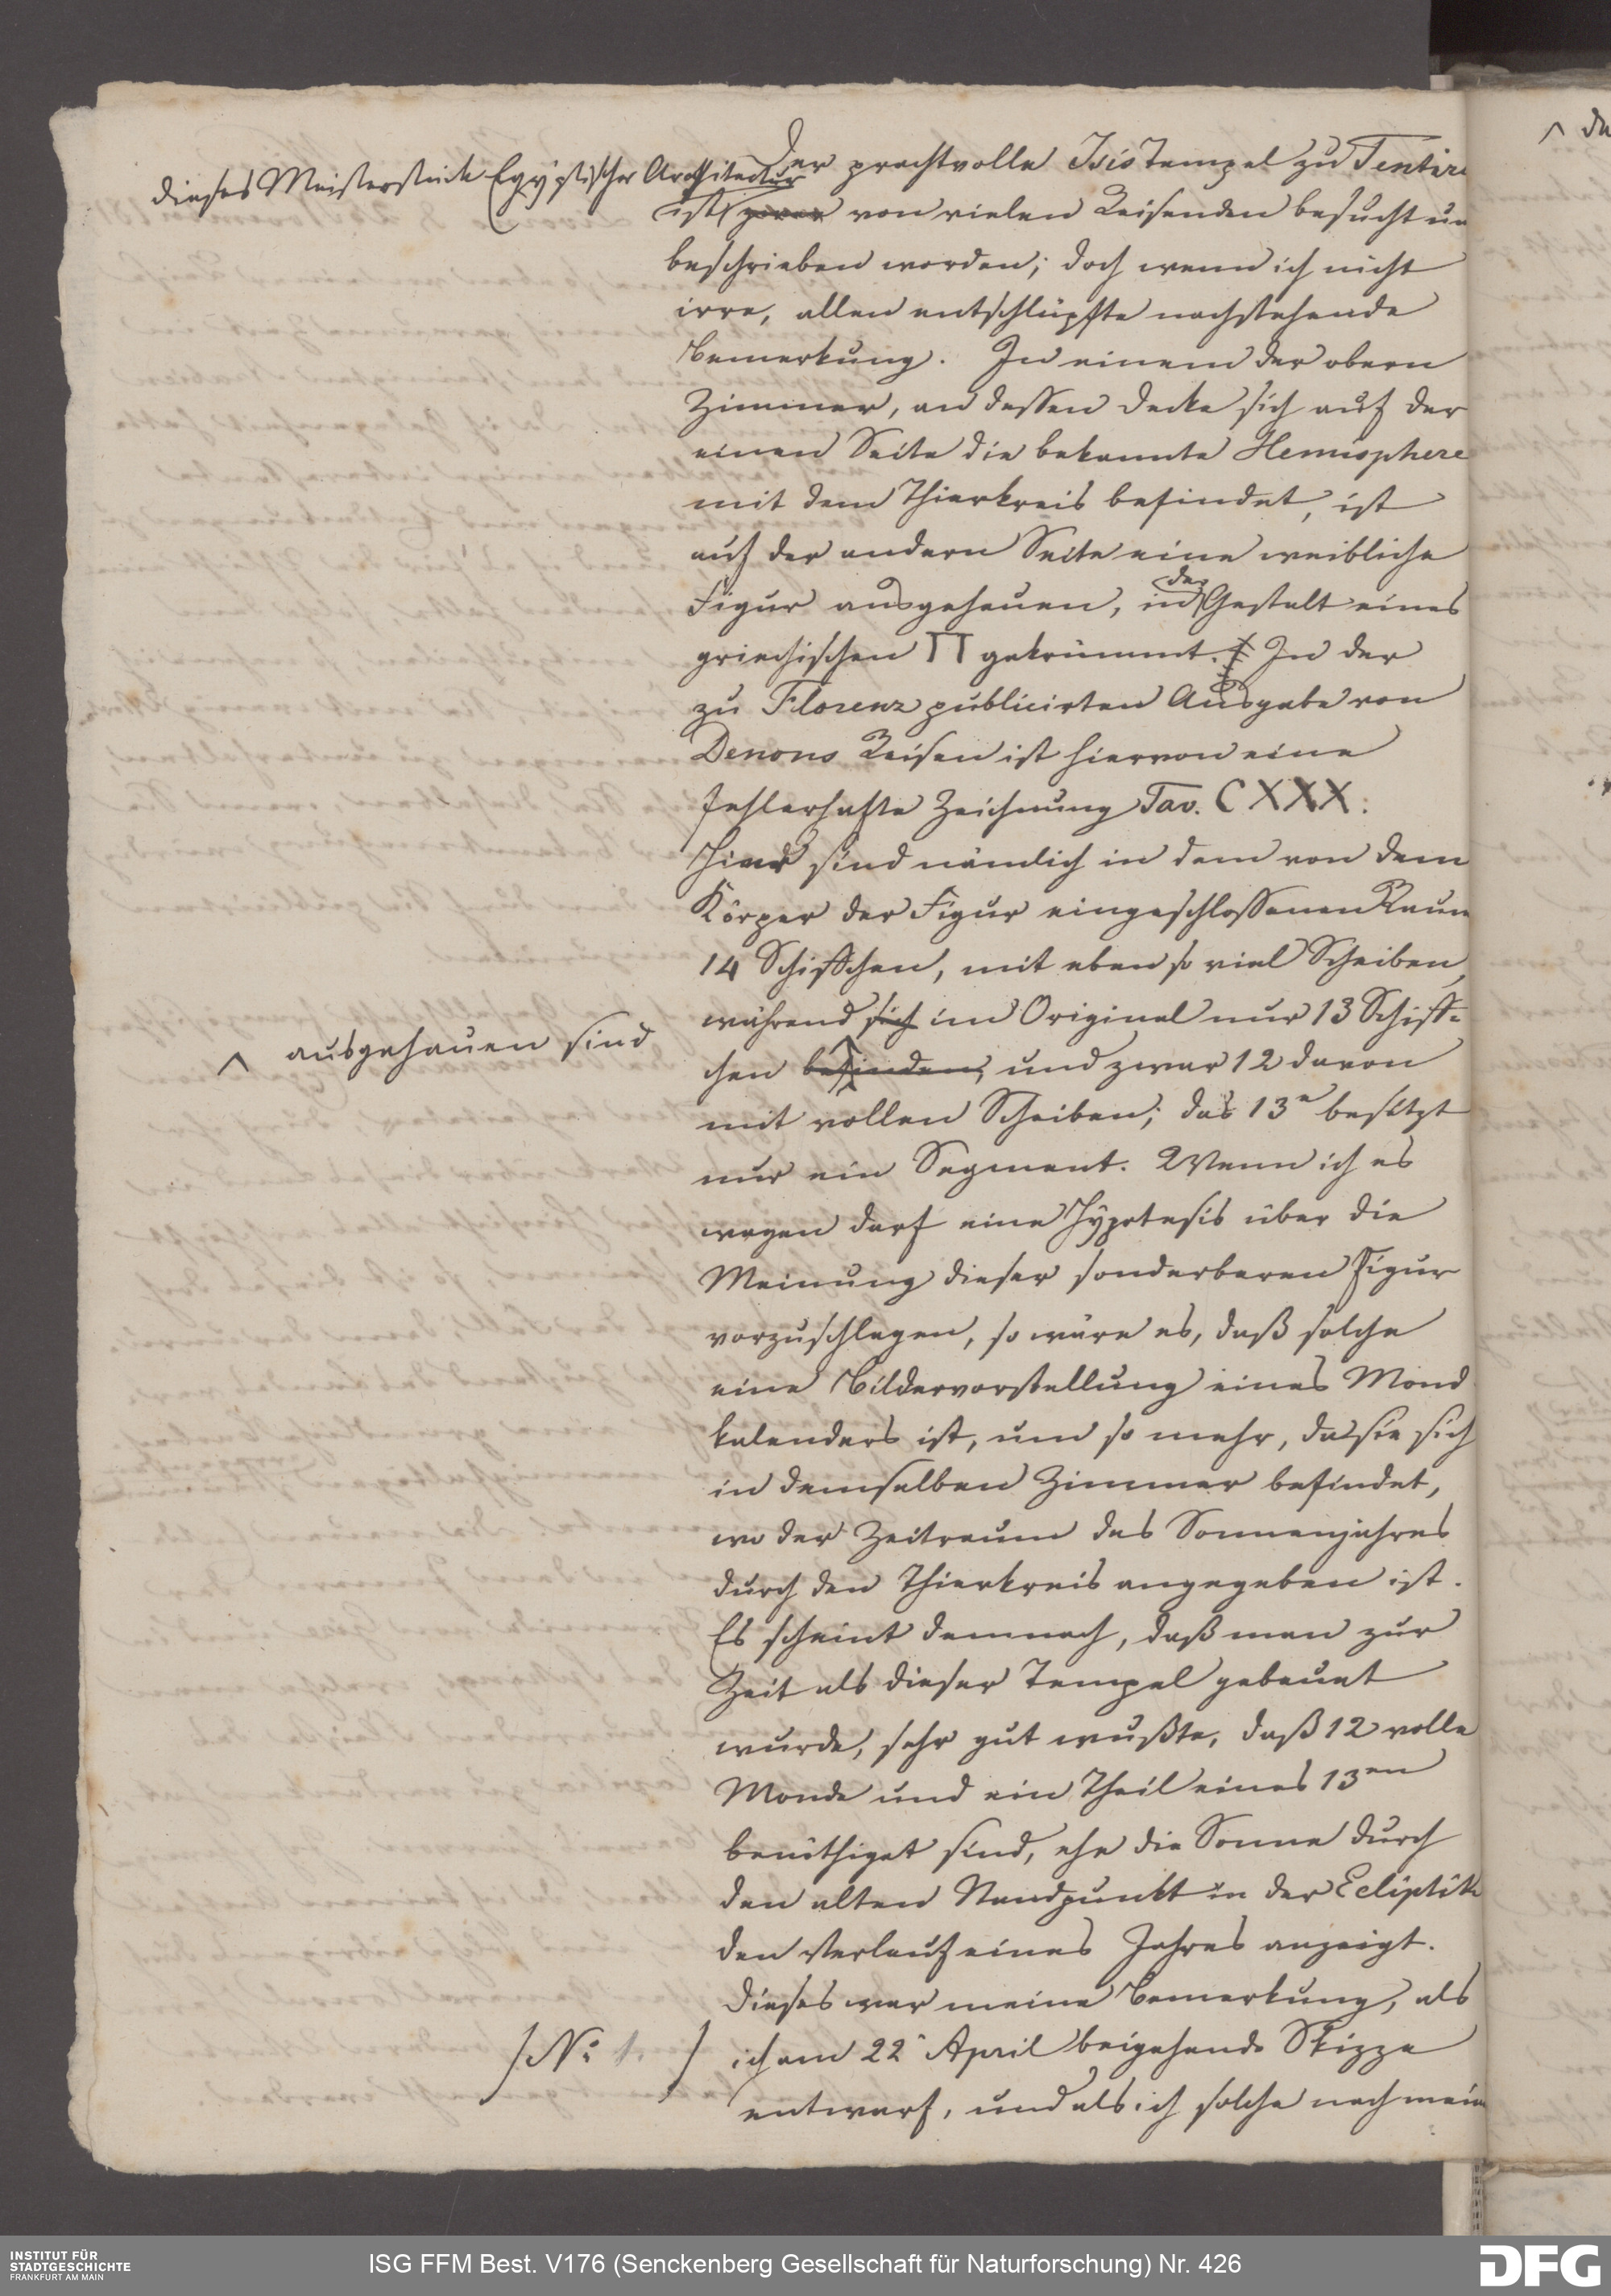 Der prachtvolle Isis Tempel zu Tentira
dieses Meisterstück Egÿptischer Architectur
ist zwar von vielen Reisenden besucht un
beschrieben worden; doch wenn ich nicht
irre, allen entschlüpfte nachstehende
Bemerkung. In einem der obern
Zimmer, an dessen Decke sich auf der
einen Seite die bekannte Hemisphere
mit dem Thierkreis befindet, ist
auf der andern Seite eine weibliche
Figur ausgehauen, in der Gestalt eines
griechischen Π gekrümmt. In der
zu Florenz publicirten Ausgabe von
Denons Reisen ist hiervon eine
fehlerhafte Zeichnung Tav. CXXX.
Hier sind nämlich in dem von dem
Körper der Figur eingeschlossenen Raum
14 Schiffchen, mit eben so viel Scheiben,
während sich im Original nur 13 Schiff-
^ ausgehauen sind
chen befinden, und zwar 12 davon
mit vollen Scheiben; das 13e besitzt
nur ein Segment. Wenn ich es
wagen darf eine Hÿpotesis über die
Meinung dieser sonderbaren Figur
vorzuschlagen, so wäre es, daß solche
eine Bildervorstellung eines Mond
kalenders ist, um so mehr, da sie sich
in demselben Zimmer befindet,
wo der Zeitraum des Sonnenjahres
durch den Thierkreis angegeben ist.
Es scheint demnach, daß man zur
Zeit als dieser Tempel gebauet
wurde, sehr gut wußte, daß 12 volle
Monde und ein Theil eines 13en
benöthiget sind, ehe die Sonne durch
den alten Standpunkt in der Ecliptik
den Verlauf eines Jahres anzeigt.
Dieses war meine Bemerkung, als
/ No 1. / ich am 22 April beigehende Skizze
entwarf, und als ich solche nach mein
^ da
INSTITUT FÜR
STADTGESCHICHTE
FRANKFURT AM MAIN
ISG FFM Best. V176 (Senckenberg Gesellschaft für Naturforschung) Nr. 426
DFG